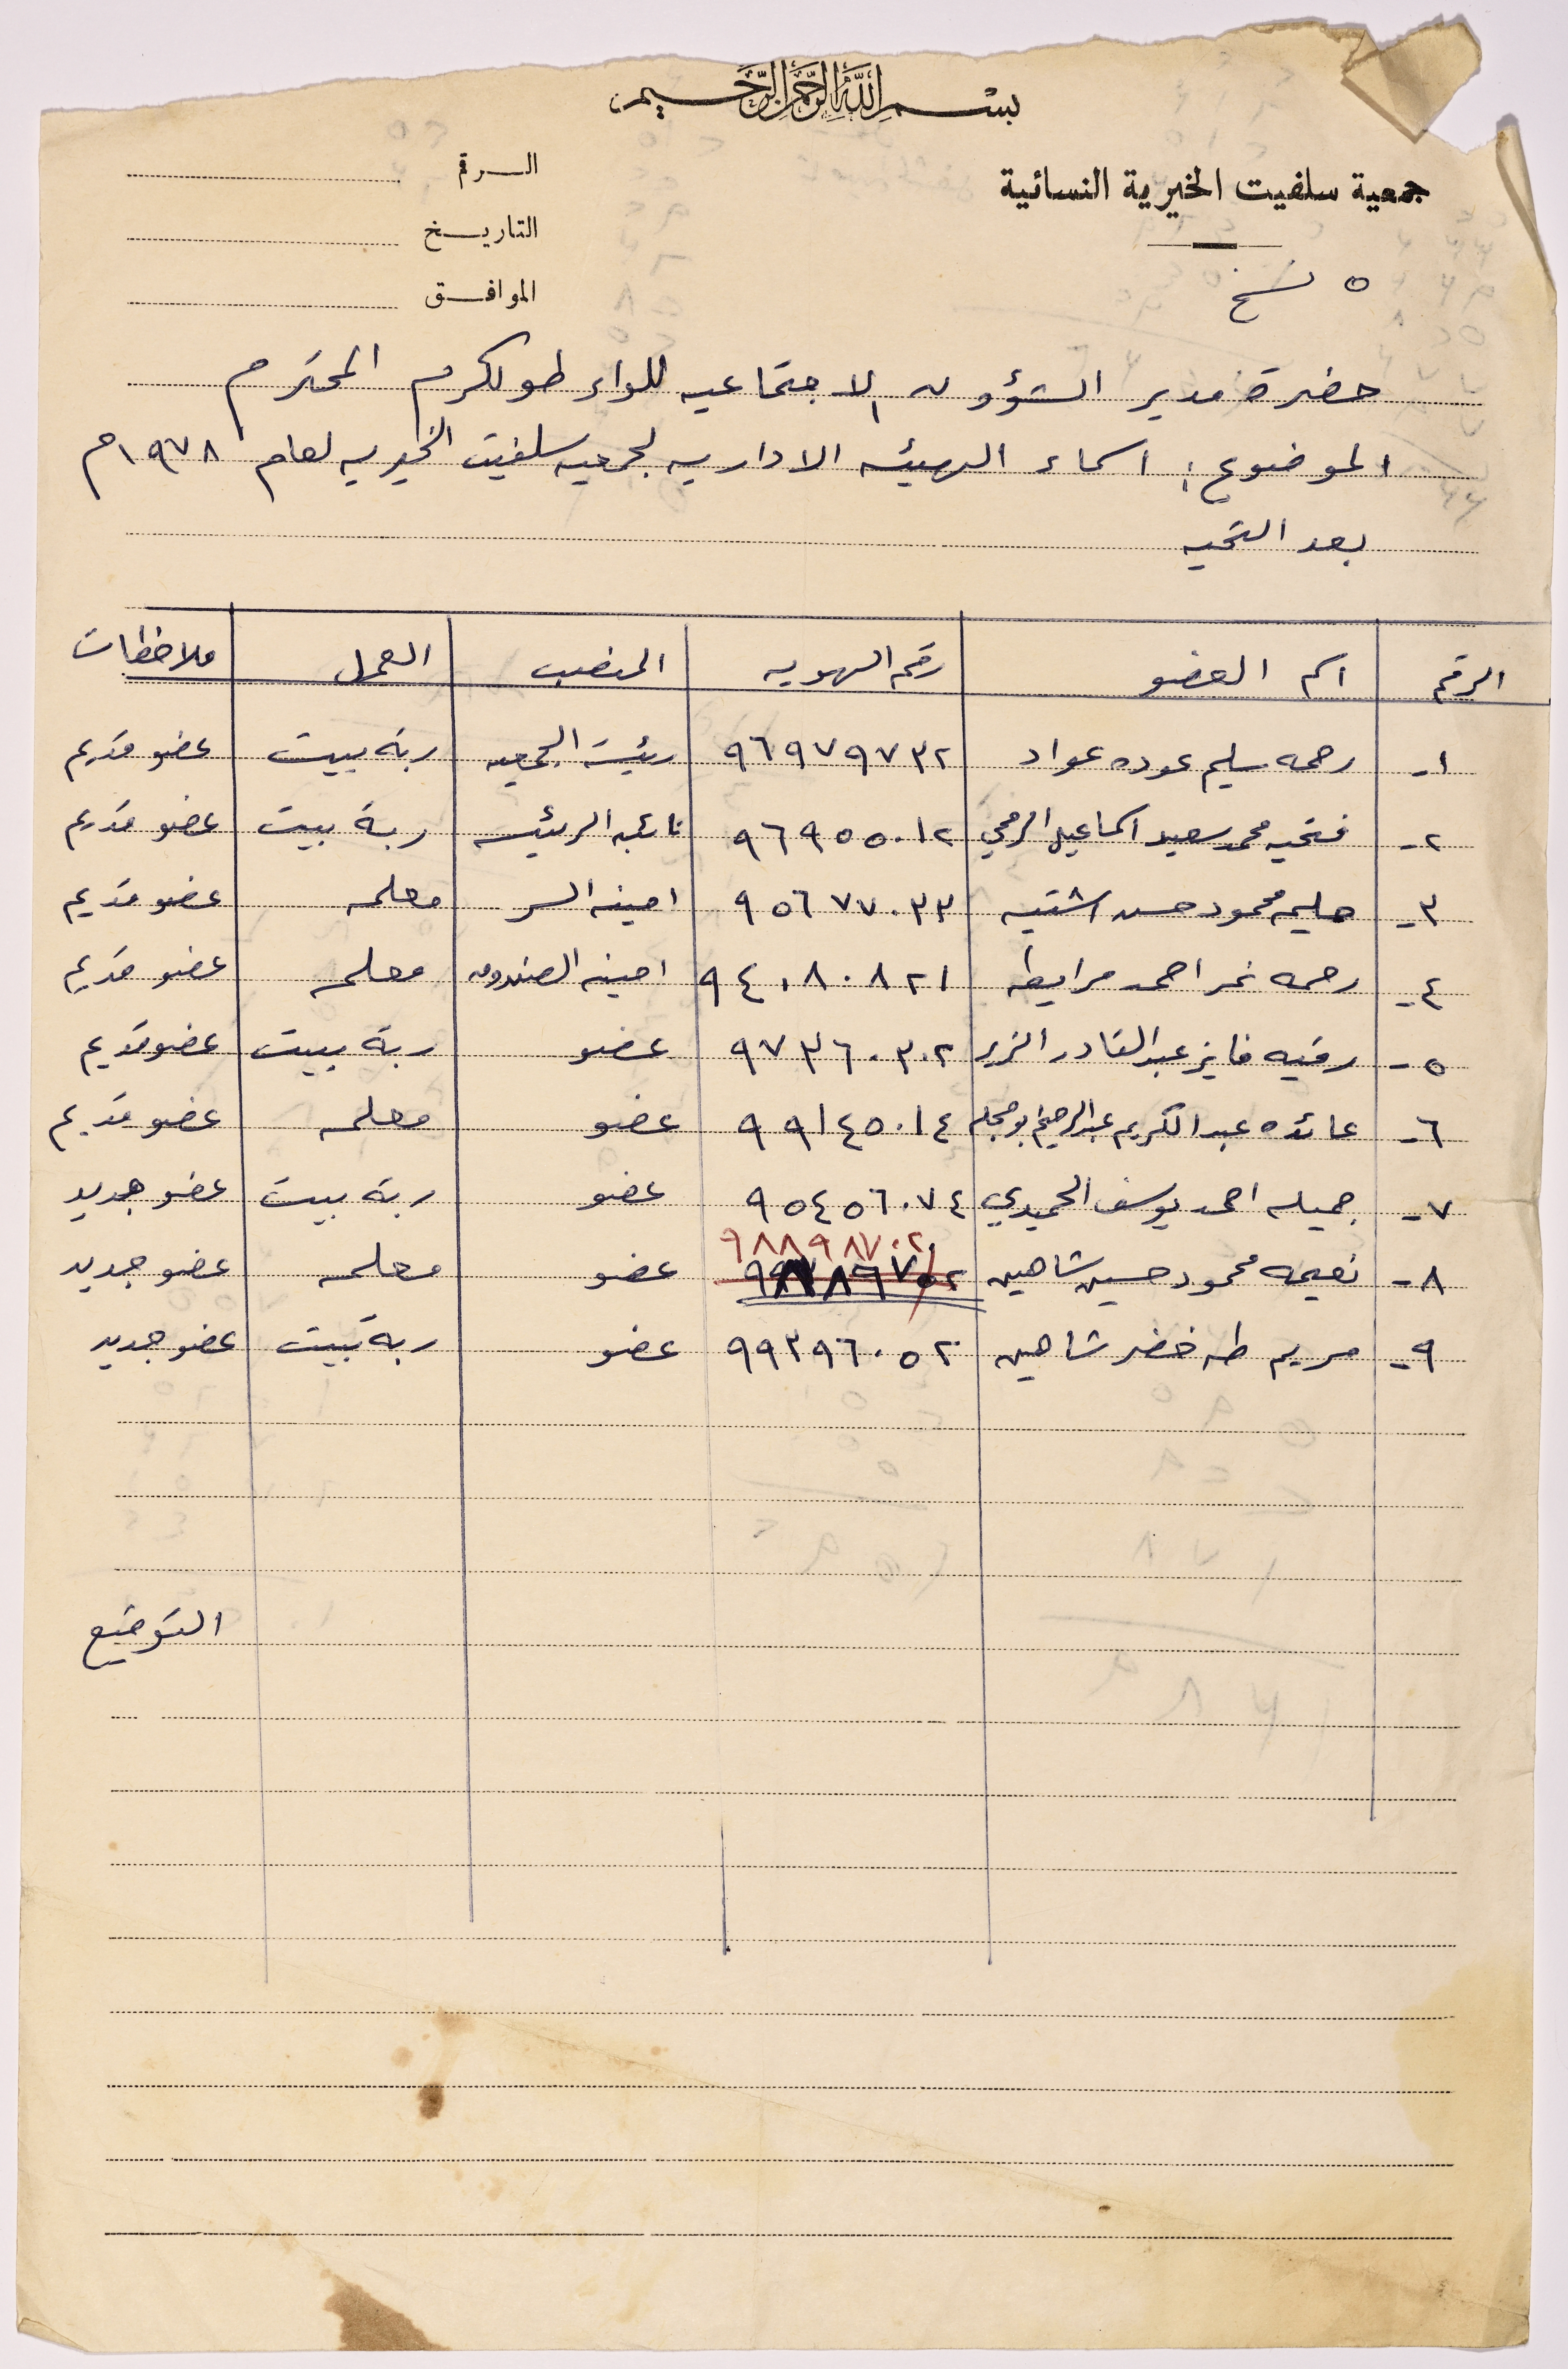 بسم الله الرحمن الرحيم
جمعية سلفيت الخيرية النسائية
الرقم
التاريخ
الموافق
٥ نسخ
حضرة مدير الشؤون الاجتماعيه للواء طولكرم المحترم
الموضوع: اسماء الهيئه الاداريه لجمعيه سلفيت الخيريه لعام ١٩٧٨م
بعد التحيه
الرقم اسم العضو رقم الهويه المنصب العمل ملاحظات
١- رحمه سليم عوده عواد ٩٦٩٧٩٧٣٢ رئيسة الجمعيه ربة بيت عضو قديم
٢- فتحيه محمد سعيد اسماعيل الرمحي ٩٦٩٥٥٠١٢ نائبه الرئيسه ربة بيت عضو قديم
٣- حليمه محمود حسن اشتيه ٩٥٦٧٧٠٣٣ امينه السر معلمه عضو قديم
٤- رحمه نمر احمد مرايطه ٩٤٠٨٠٨٢١ امينه الصندوق معلمه عضو قديم
٥- رقيه فايز عبد القادر الزير ٩٧٣٦٠٣٠٢ عضو ربة بيت عضو قديم
٦- عائده عبد الكريم عبد الرحيم ٩٩١٤٥٠١٤ عضو معلمه عضو قديم
٧- جميله احمد يوسف الحميدي ٩٥٤٥٦٠٧٤ عضو ربة بيت عضو جديد
٨- نعيمه محمود حسين شاهين ٩٨٨٩٨٧٠٢ عضو معلمه عضو جديد
٩- مريم طه خضر شاهين ٩٩٣٩٦٠٥٢ عضو ربة بيت عضو جديد
التوقيع